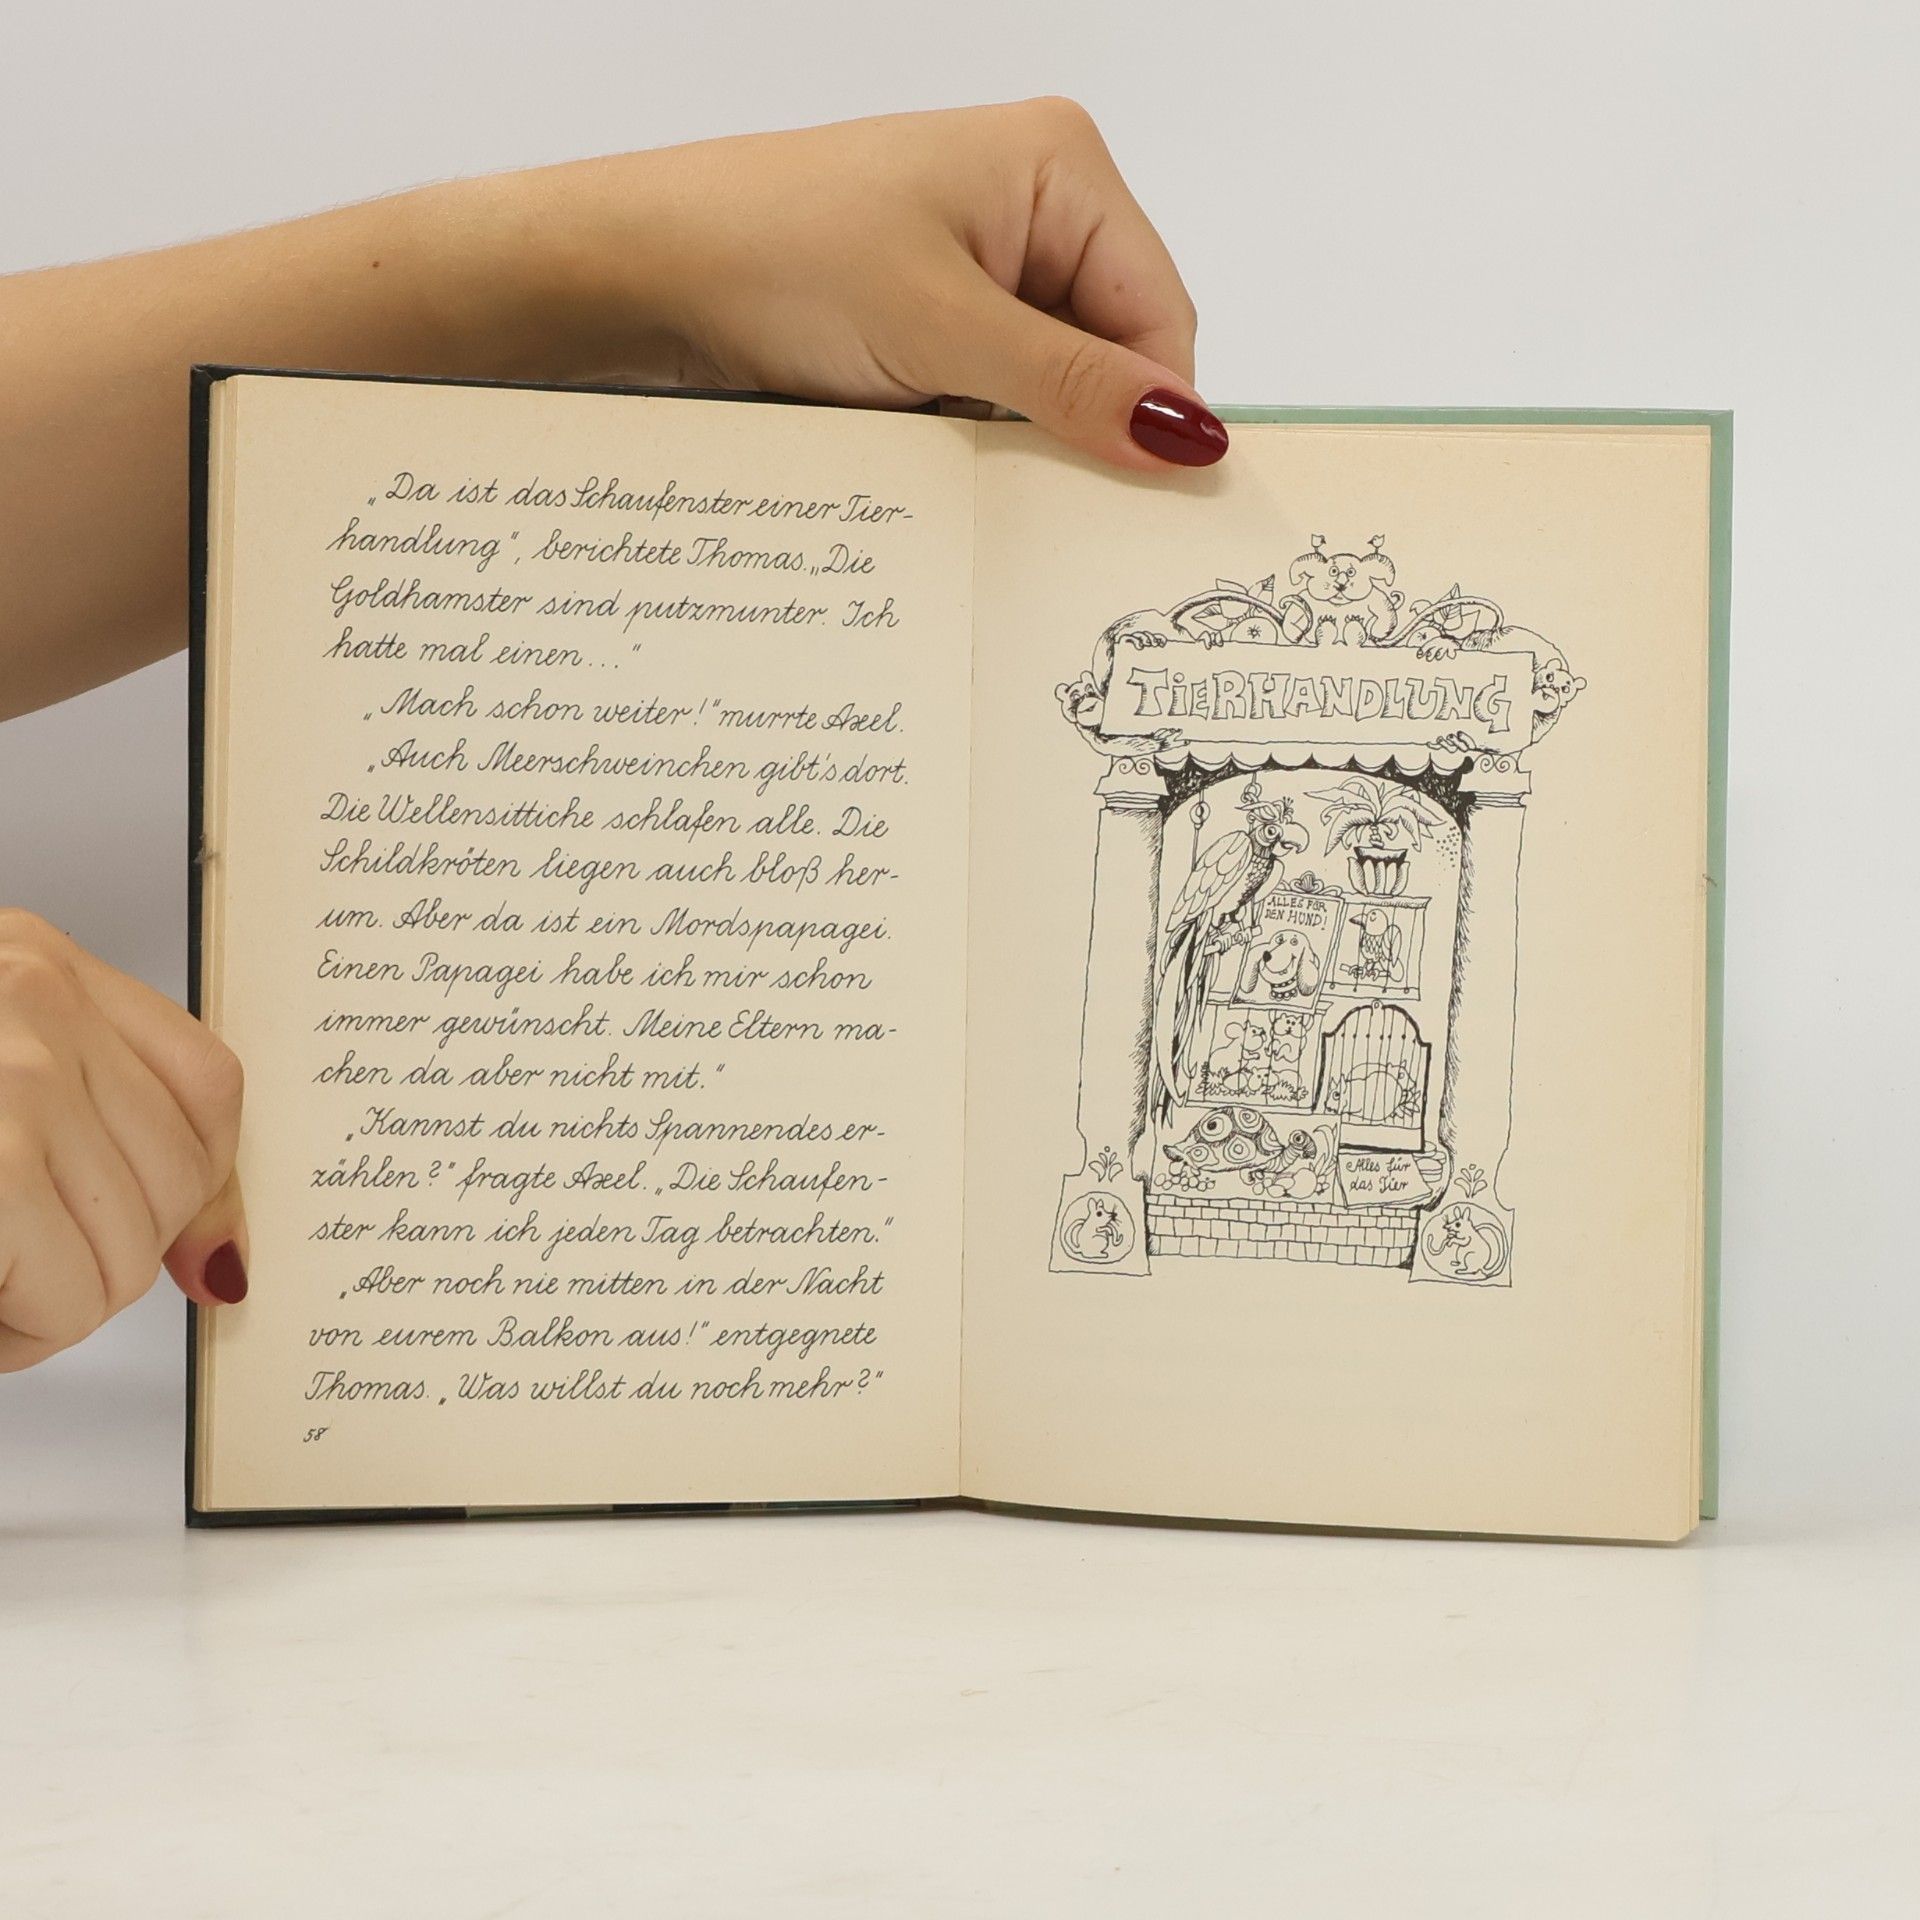 „Da ist das Schaufenster einer Tier-
handlung“, berichtete Thomas. „Die
Goldhamster sind putzmunter. Ich
hatte mal einen...“
„Mach schon weiter!“ murrte Axel.
„Auch Meerschweinchen gibt's dort.
Die Wellensittiche schlafen alle. Die
Schildkröten liegen auch bloß her-
um. Aber da ist ein Mordspapagei.
Einen Papagei habe ich mir schon
immer gewünscht. Meine Eltern ma-
chen da aber nicht mit.“
„Kannst du nichts Spannendes er-
zählen?“ fragte Axel. „Die Schaufen-
ster kann ich jeden Tag betrachten.“
„Aber noch nie mitten in der Nacht
von eurem Balkon aus!“ entgegnete
Thomas. „Was willst du noch mehr?“
58
TiERHANDLUNG
ALLES FÜR
DEN HUND!
Alles für
das Tier